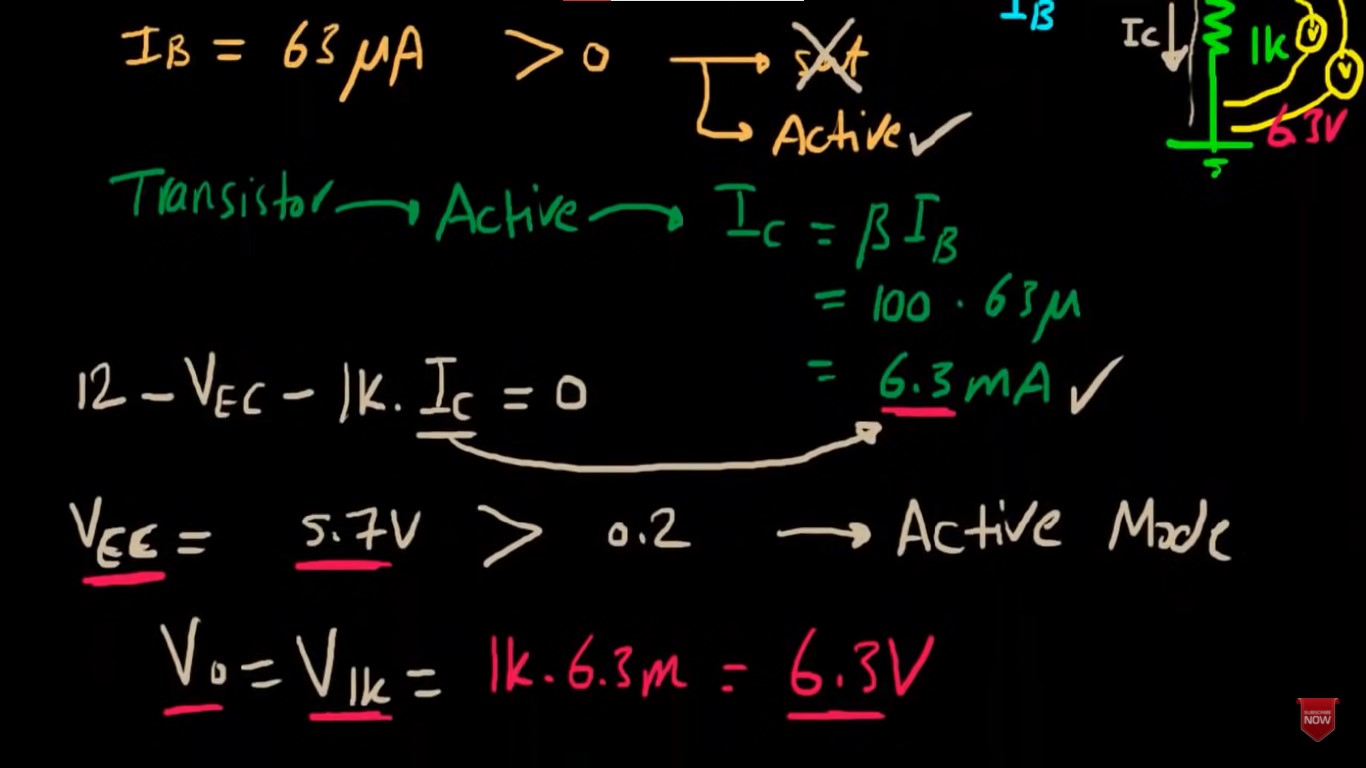 I_B = 63 μA > 0 → sat
→ Active ✓
I_B
I_C ↓ 1k V V
6.3V
Transistor → Active → I_C = β I_B
= 100 · 63 μ
= 6.3 mA ✓
12 - V_EC - 1k. I_C = 0
V_EE = 5.7V > 0.2 → Active Mode
V_o = V_1k = 1k · 6.3m = 6.3V
SUBSCRIBE
NOW